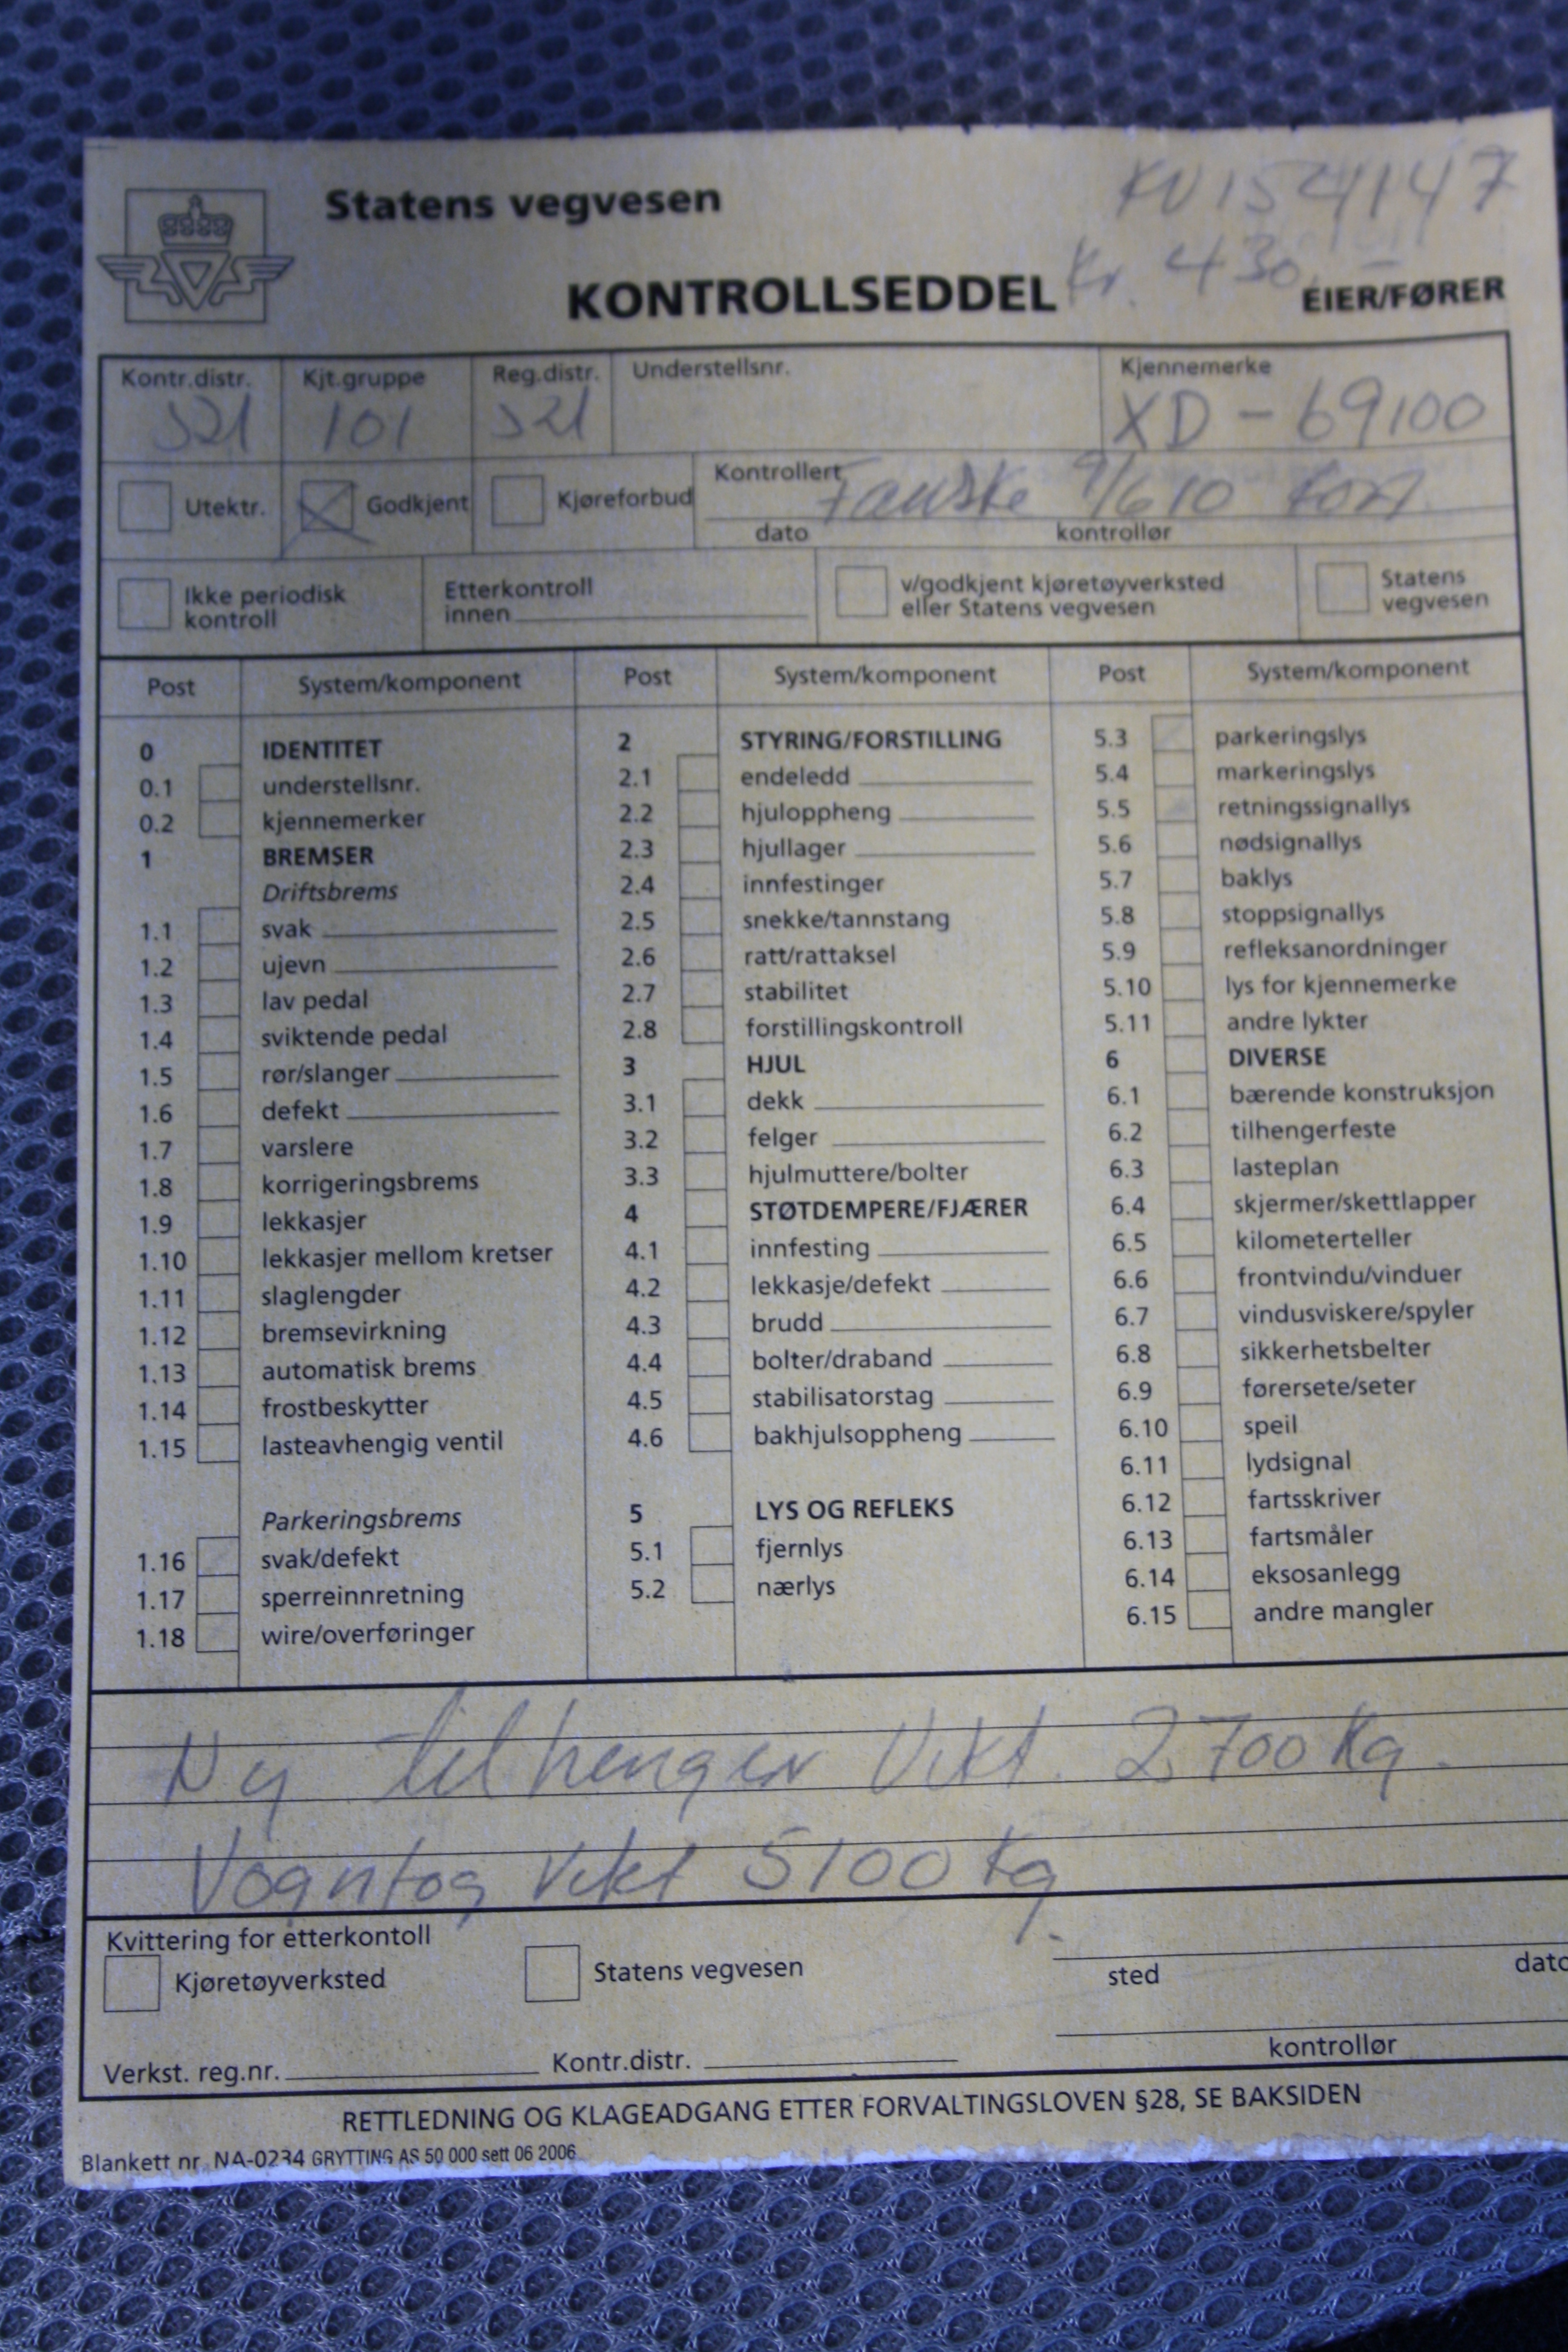 Statens vegvesen
KV154147
KONTROLLSEDDEL
Kr. 430,-
EIER/FØRER
Kontr.distr. Kjt.gruppe Reg.distr. Understellsnr. Kjennemerke
521 101 521 XD-69100
Utektr. Godkjent Kjøreforbud Kontrollert Fauske 9/6 10
dato kontrollør
Ikke periodisk kontroll
Etterkontroll innen
v/godkjent kjøretøyverksted eller Statens vegvesen
Statens vegvesen
Post System/komponent Post System/komponent Post System/komponent
0 IDENTITET
0.1 understellsnr.
0.2 kjennemerker
1 BREMSER
Driftsbrems
1.1 svak
1.2 ujevn
1.3 lav pedal
1.4 sviktende pedal
1.5 rør/slanger
1.6 defekt
1.7 varslere
1.8 korrigeringsbrems
1.9 lekkasjer
1.10 lekkasjer mellom kretser
1.11 slaglengder
1.12 bremsevirkning
1.13 automatisk brems
1.14 frostbeskytter
1.15 lasteavhengig ventil
Parkeringsbrems
1.16 svak/defekt
1.17 sperreinnretning
1.18 wire/overføringer
2 STYRING/FORSTILLING
2.1 endeledd
2.2 hjuloppheng
2.3 hjullager
2.4 innfestinger
2.5 snekke/tannstang
2.6 ratt/rattaksel
2.7 stabilitet
2.8 forstillingskontroll
3 HJUL
3.1 dekk
3.2 felger
3.3 hjulmuttere/bolter
4 STØTDEMPERE/FJÆRER
4.1 innfesting
4.2 lekkasje/defekt
4.3 brudd
4.4 bolter/draband
4.5 stabilisatorstag
4.6 bakhjulsoppheng
5 LYS OG REFLEKS
5.1 fjernlys
5.2 nærlys
5.3 parkeringslys
5.4 markeringslys
5.5 retningssignallys
5.6 nødsignallys
5.7 baklys
5.8 stoppsignallys
5.9 refleksanordninger
5.10 lys for kjennemerke
5.11 andre lykter
6 DIVERSE
6.1 bærende konstruksjon
6.2 tilhengerfeste
6.3 lasteplan
6.4 skjermer/skettlapper
6.5 kilometerteller
6.6 frontvindu/vinduer
6.7 vindusviskere/spyler
6.8 sikkerhetsbelter
6.9 førersete/seter
6.10 speil
6.11 lydsignal
6.12 fartsskriver
6.13 fartsmåler
6.14 eksosanlegg
6.15 andre mangler
Ny tilhenger Vekt. 2700 kg.
Vogntog Vekt 5100 kg.
Kvittering for etterkontoll
Kjøretøyverksted Statens vegvesen sted dato
Verkst. reg.nr. Kontr.distr. kontrollør
RETTLEDNING OG KLAGEADGANG ETTER FORVALTINGSLOVEN §28, SE BAKSIDEN
Blankett nr. NA-0234 GRYTTING AS 50 000 sett 06 2006